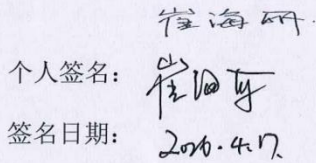 崔海研.
个人签名：崔海研
签名日期：2026.4.17.